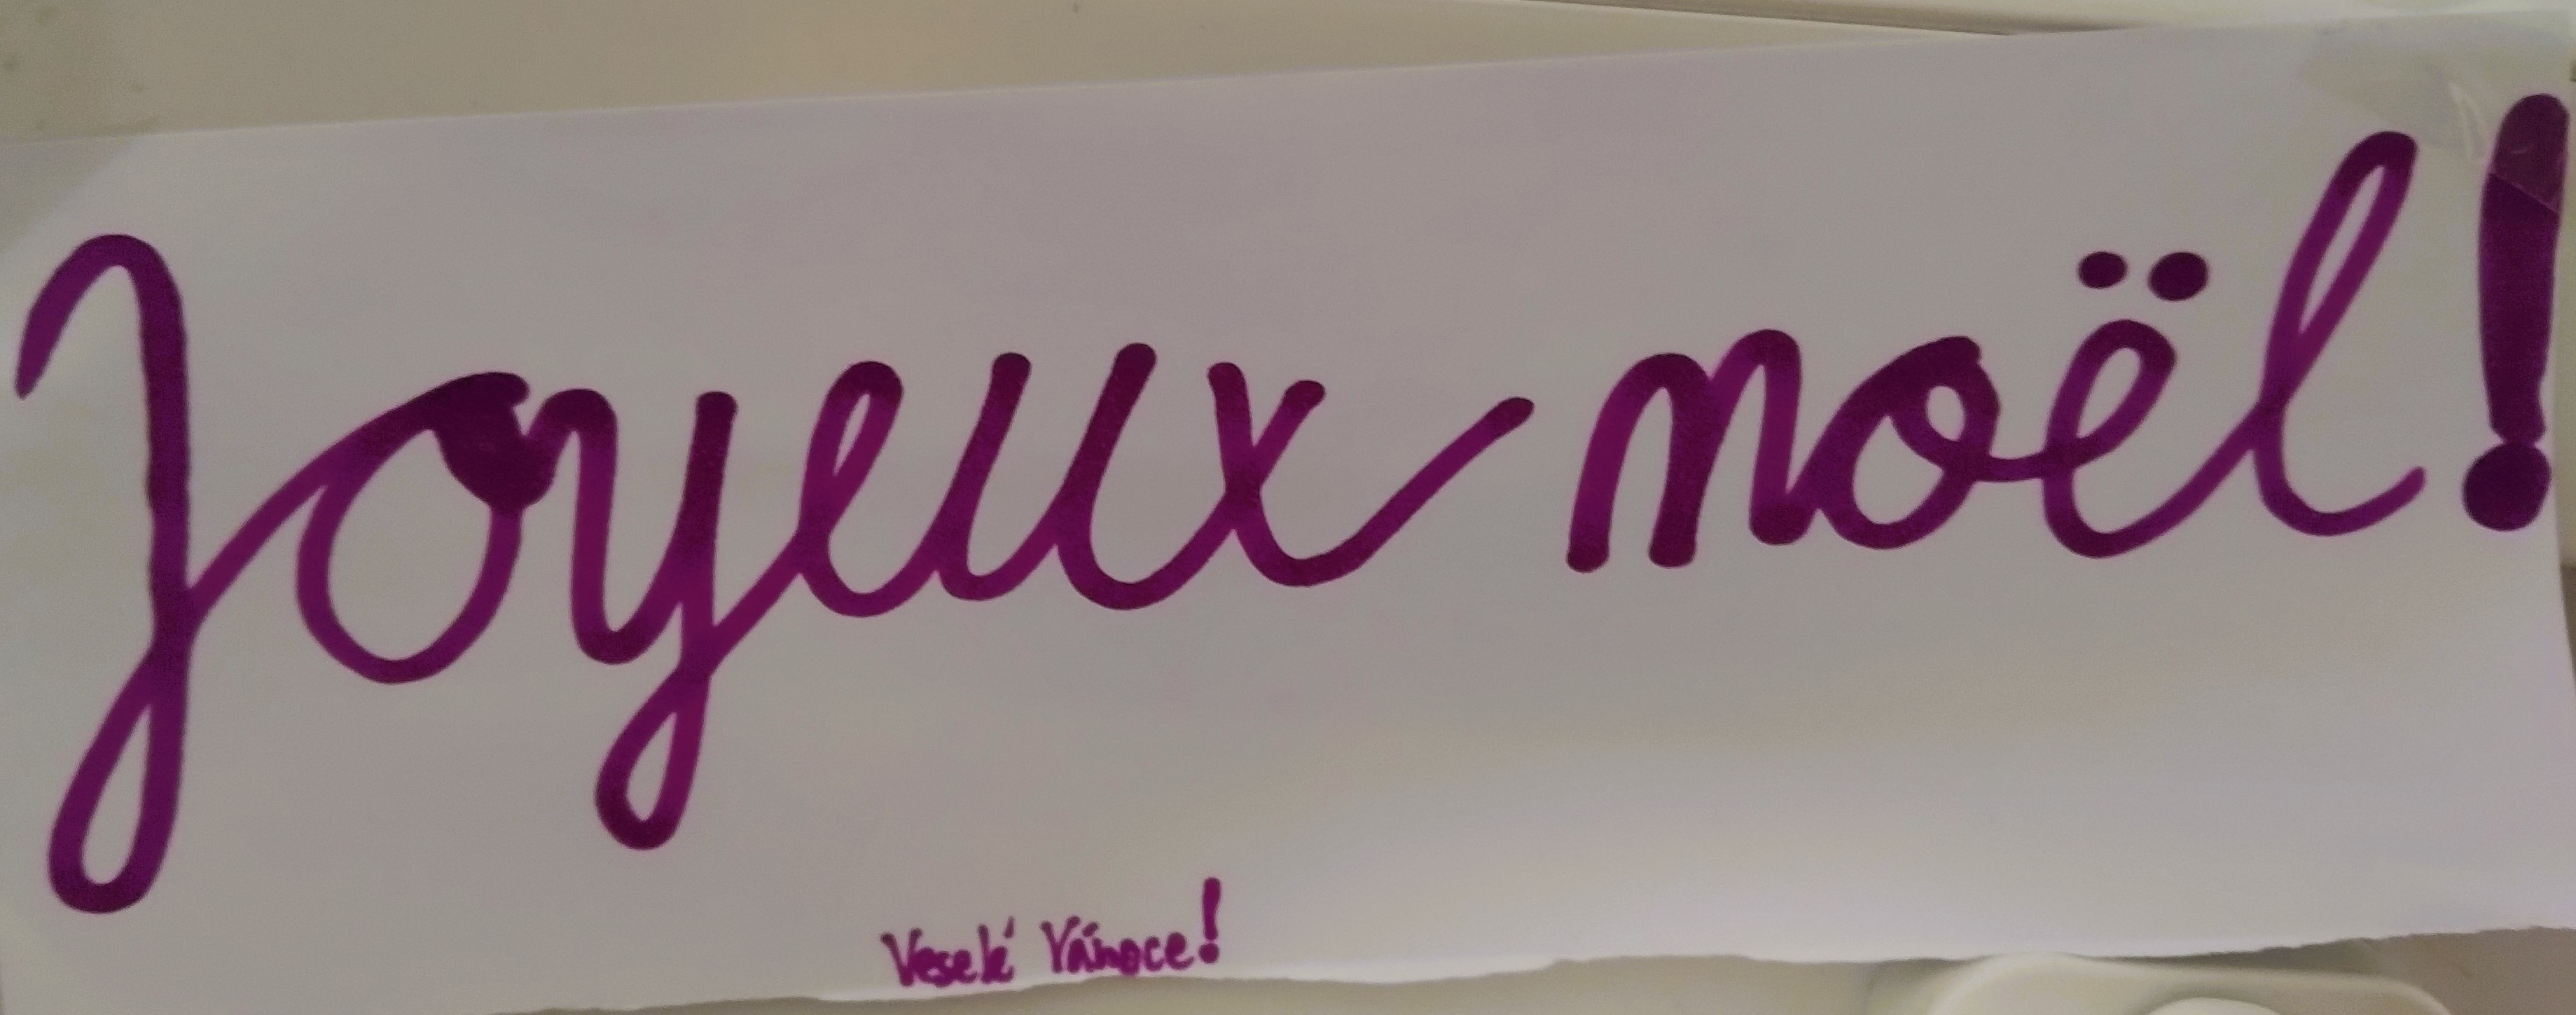 Joyeux noël!
Veselé Vánoce!